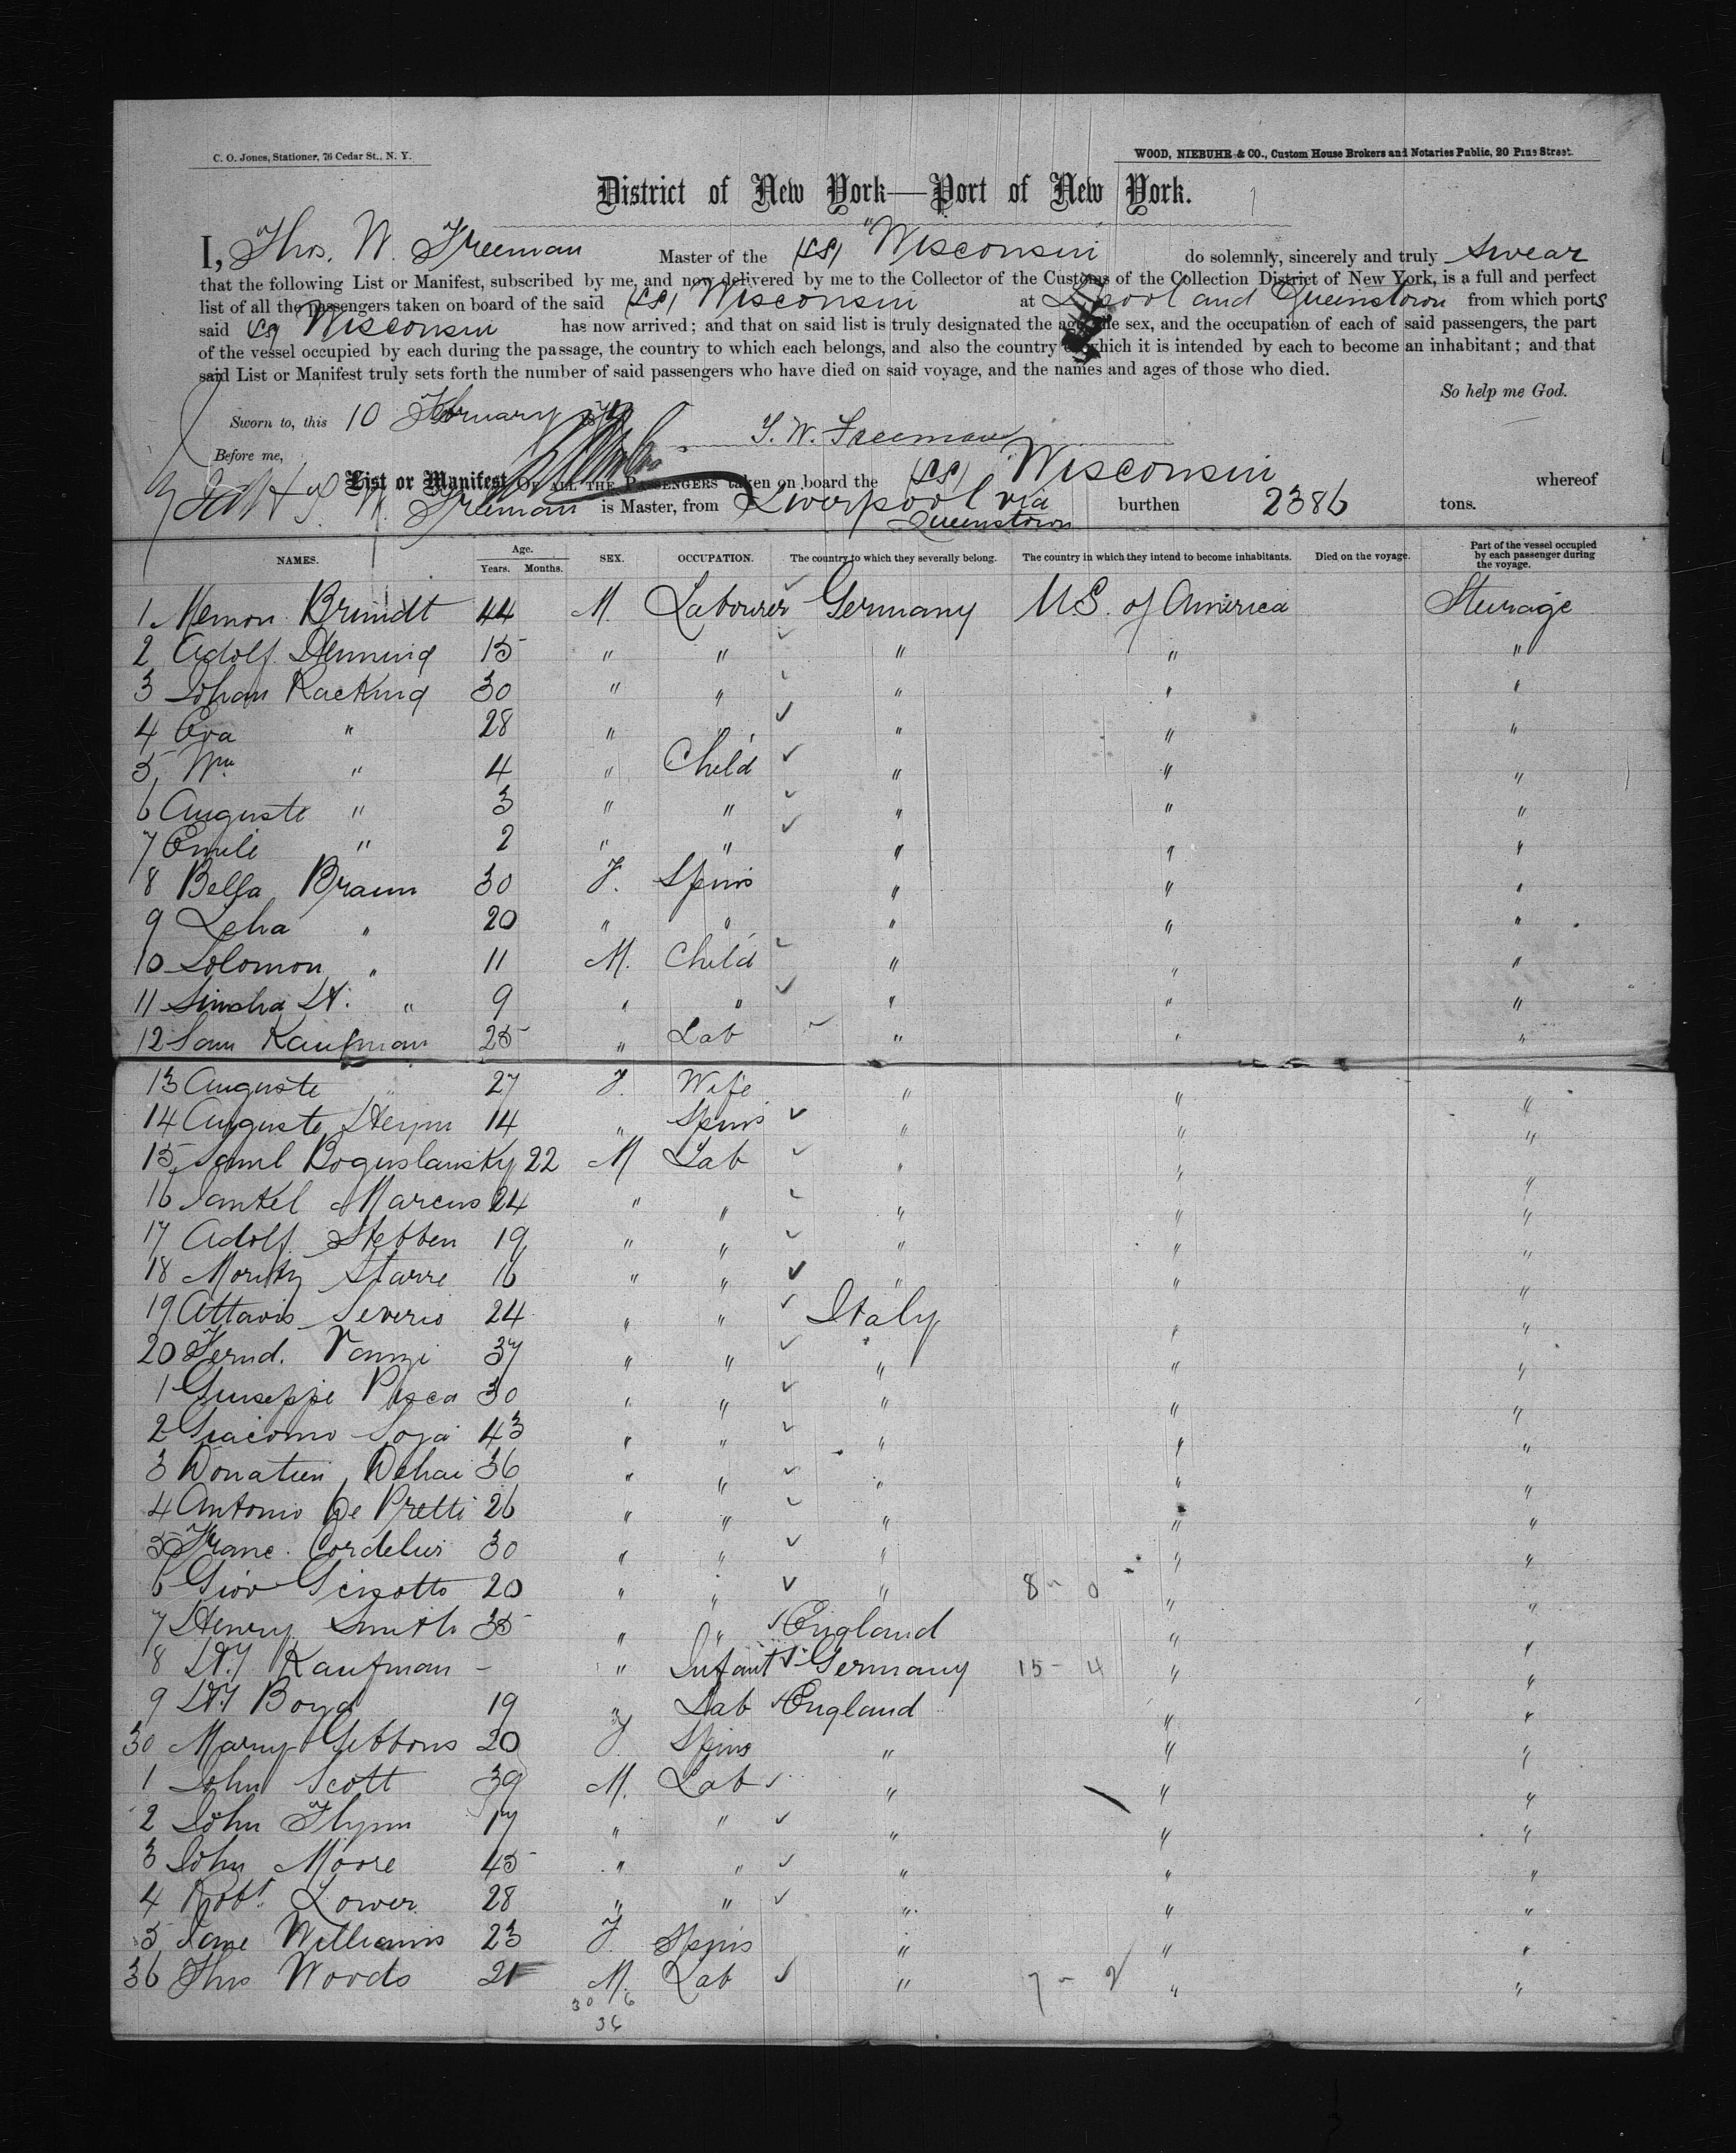 C. O. Jones, Stationer, 76 Cedar St., N. Y.
WOOD, NIEBUHR & CO., Custom House Brokers and Notaries Public, 20 Pine Street.
District of New York—Port of New York.
I, Thos. W. Freeman Master of the (SS) "Wisconsin do solemnly, sincerely and truly Swear
that the following List or Manifest, subscribed by me, and now delivered by me to the Collector of the Customs of the Collection District of New York, is a full and perfect
list of all the passengers taken on board of the said (SS) Wisconsin at L'pool and Queenstown from which ports
said SS Wisconsin has now arrived; and that on said list is truly designated the age, the sex, and the occupation of each of said passengers, the part
of the vessel occupied by each during the passage, the country to which each belongs, and also the country of which it is intended by each to become an inhabitant; and that
said List or Manifest truly sets forth the number of said passengers who have died on said voyage, and the names and ages of those who died.
So help me God.
Sworn to, this 10 February
T. W. Freeman
Before me,
List or Manifest OF ALL THE PASSENGERS taken on board the (SS) Wisconsin whereof
Freeman is Master, from Liverpool via Queenstown burthen 2386 tons.
NAMES. Age. Years. Months. SEX. OCCUPATION. The country to which they severally belong. The country in which they intend to become inhabitants. Died on the voyage. Part of the vessel occupied by each passenger during the voyage.
1 Memon Brindt 44 M. Labourer Germany U.S. of America Steerage
2 Adolf Henning 15 " " " " "
3 Johan Racking 30 " " " " "
4 Eva " 28 " " " " "
5 Wm " 4 " Child " " "
6 Auguste " 3 " " " " "
7 Emile " 2 " " " " "
8 Bella Braun 30 F. Spins " " "
9 Leha " 20 " " " " "
10 Solomon " 11 M. Child " " "
11 Simcha " 9 " " " " "
12 Sam Kaufman 25 " Lab " " "
13 Auguste " 27 F. Wife " " "
14 Auguste Heym 14 " Spins " " "
15 Saml Boguslansky 22 M Lab " " "
16 Jankel Marcus 24 " " " " "
17 Adolf Stebben 19 " " " " "
18 Moritz Starre 16 " " " " "
19 Attavio Severio 24 " " Italy " "
20 Fernd. Vanzi 37 " " " " "
1 Giuseppe Pesca 30 " " " " "
2 Giacomo Soja 43 " " " " "
3 Donatien Dehai 36 " " " " "
4 Antonio De Pretti 26 " " " " "
5 Franc. Cordelus 30 " " " " "
6 Giov Gizotto 20 " " " 8 - 0 " "
7 Henry Smith 35 " " England " "
8 Kaufman - " Infant Germany 15 - 4 " "
9 Boyd 19 " Lab England " "
30 Mary Gibbons 20 F. Spins " " "
1 John Scott 39 M. Lab " " "
2 John Flynn 17 " " " " "
3 John Moore 45 " " " " "
4 Robt. Lower 28 " " " " "
5 Jane Williams 23 F. Spins " " "
36 Thos Woods 21 M. Lab " 7 - 2 " "
30 6
36